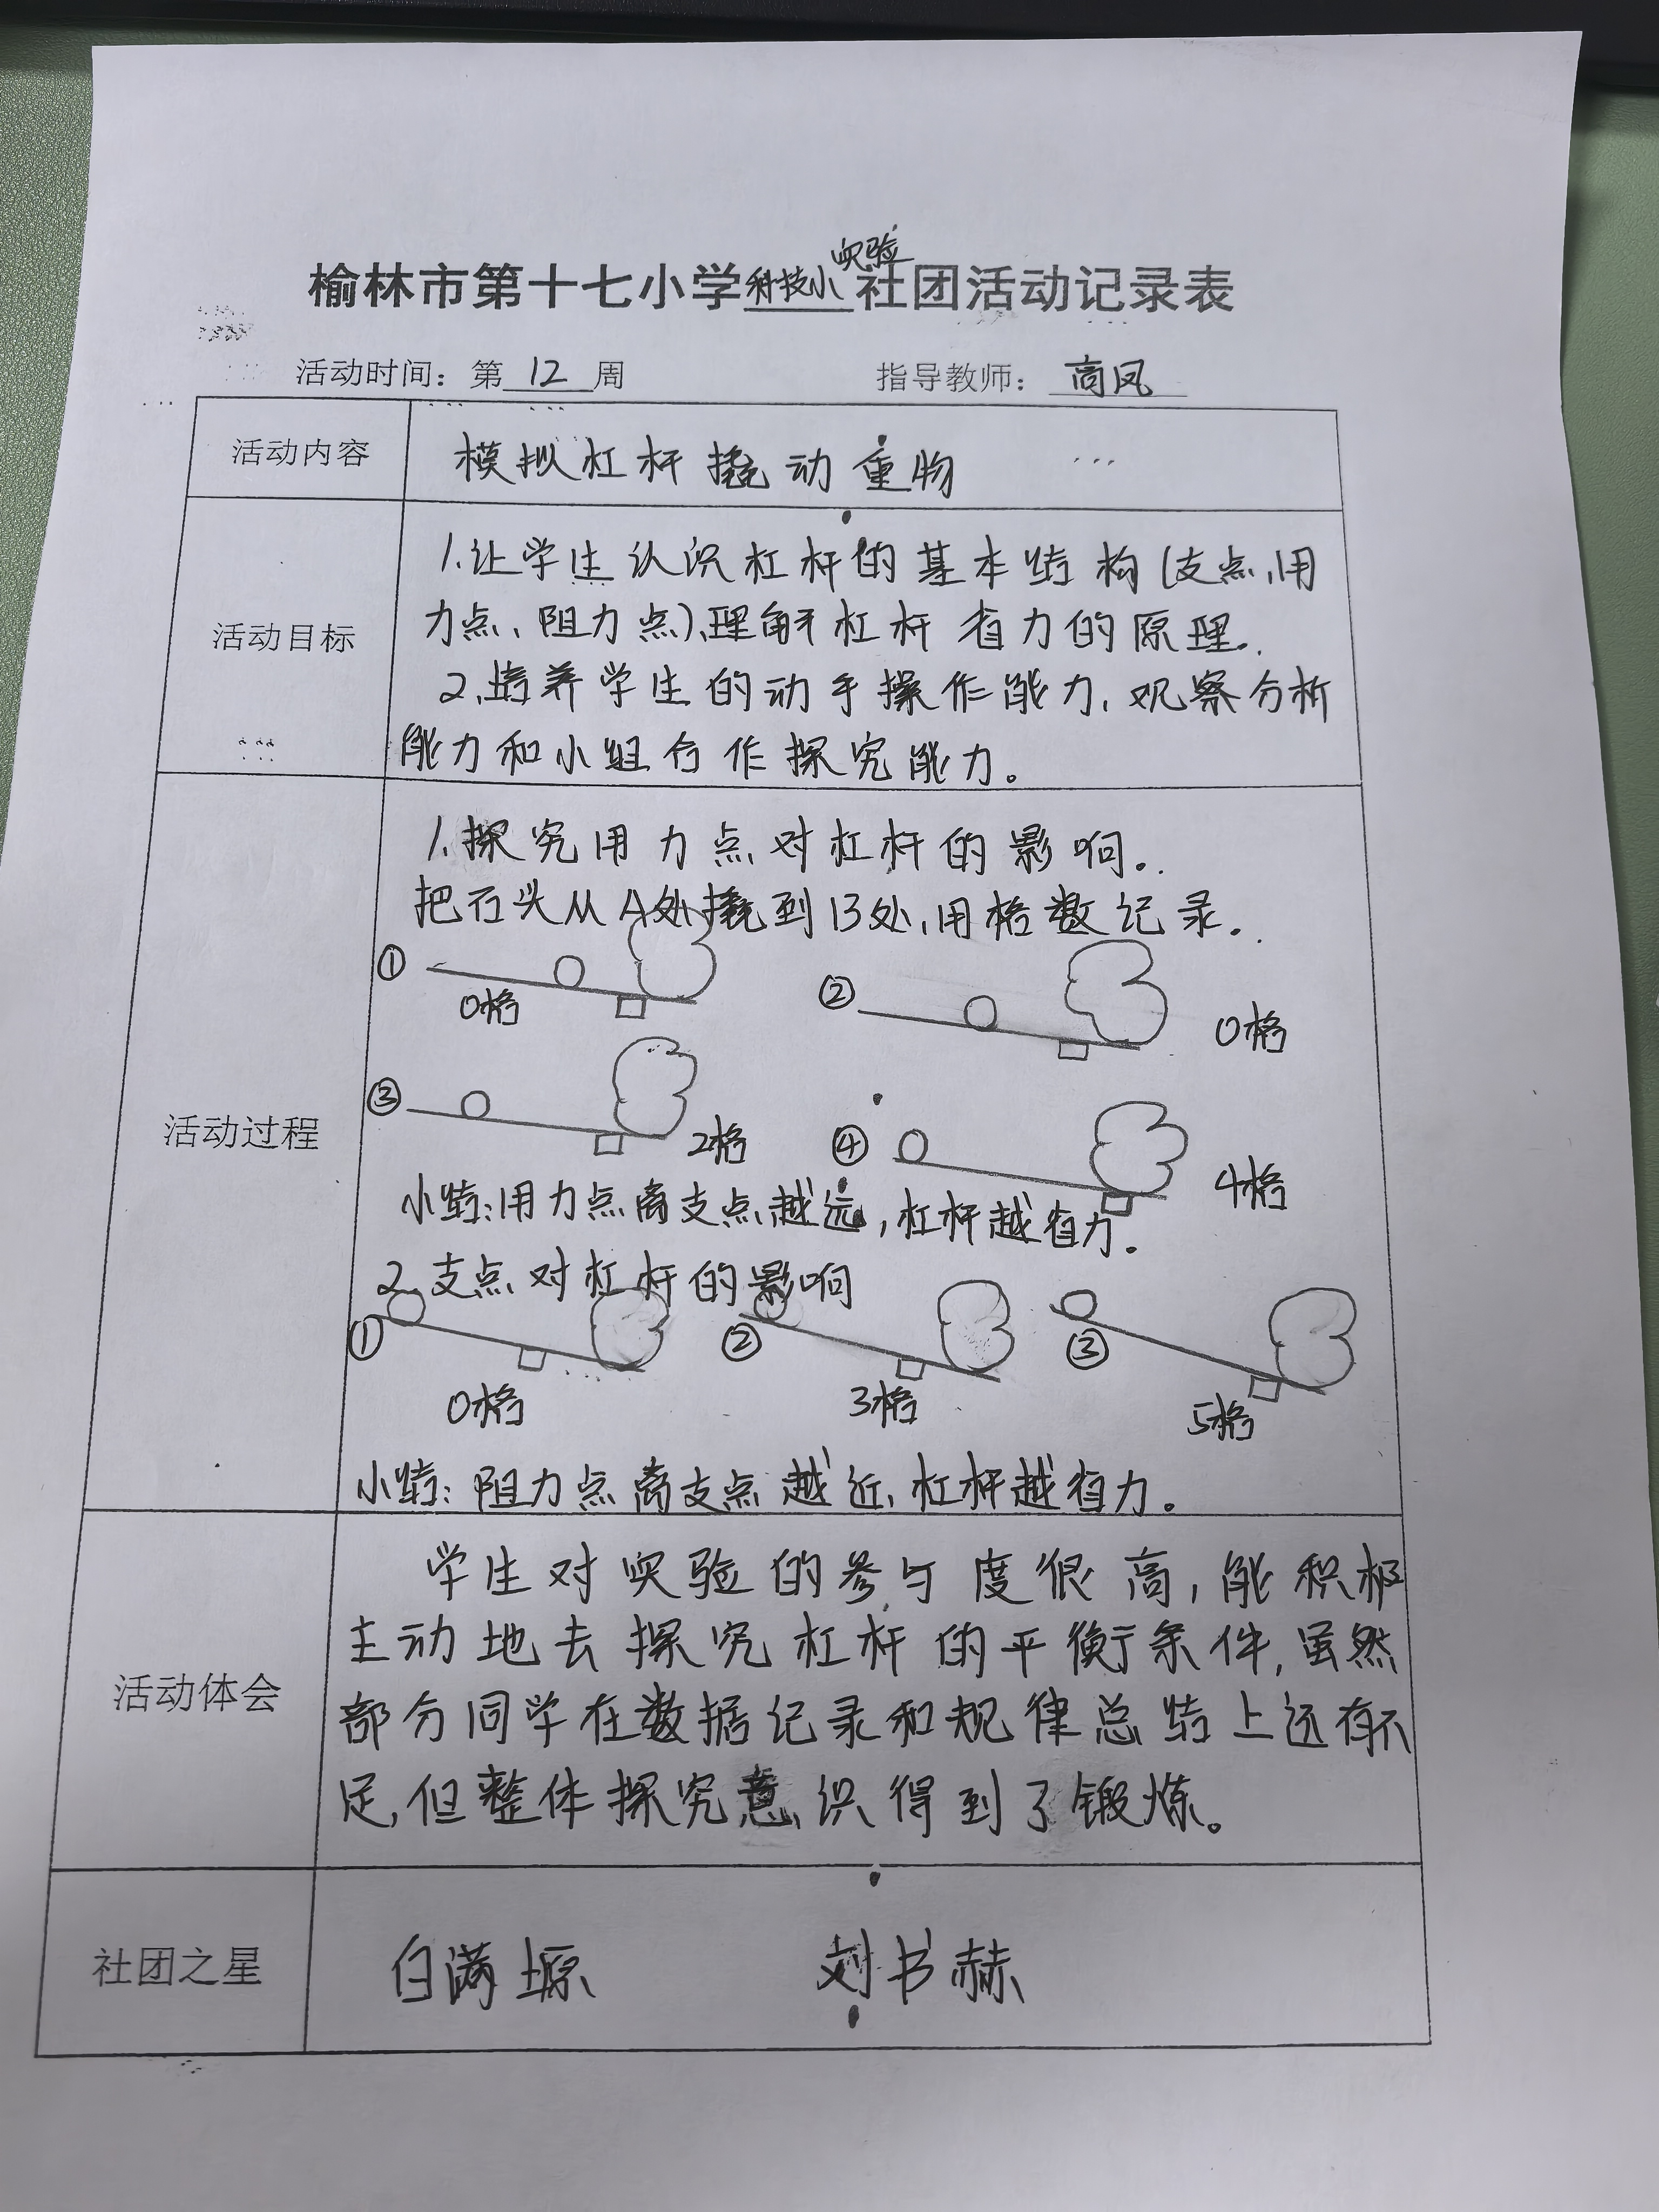 榆林市第十七小学科技小实验社团活动记录表
活动时间：第12周 指导教师：商凤
活动内容 模拟杠杆撬动重物
活动目标
1.让学生认识杠杆的基本结构(支点、用
力点、阻力点)、理解杠杆省力的原理.
2.培养学生的动手操作能力、观察分析
能力和小组合作探究能力。
活动过程
1.探究用力点对杠杆的影响.
把石头从A处撬到B处,用格数记录.
① 0格 ② 0格
③ 2格 ④ 4格
小结:用力点离支点越远,杠杆越省力.
2.支点对杠杆的影响
① ② ③
0格 3格 5格
小结:阻力点离支点越近,杠杆越省力.
活动体会
学生对实验的参与度很高,能积极
主动地去探究杠杆的平衡条件,虽然
部分同学在数据记录和规律总结上还有不
足,但整体探究意识得到了锻炼。
社团之星 白满塬 刘书赫